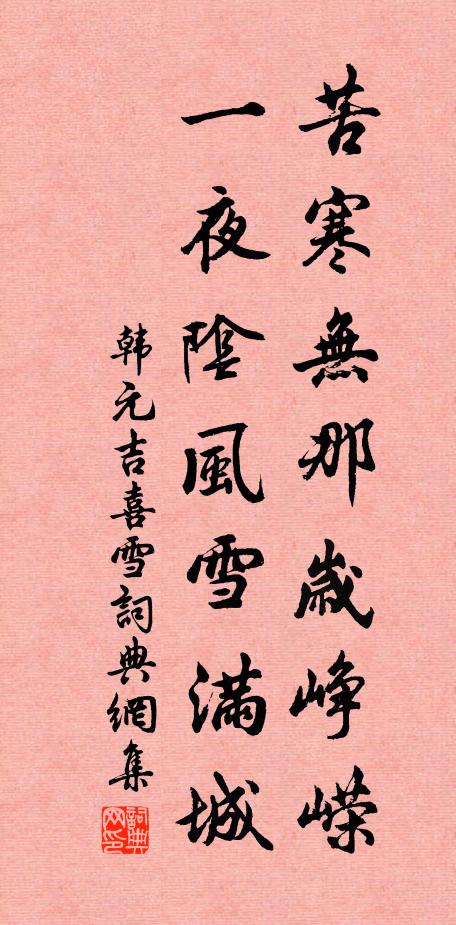 苦寒無那歲崢嶸
一夜陰風雪滿城
韩元吉喜雪詞典網集
詞典网印